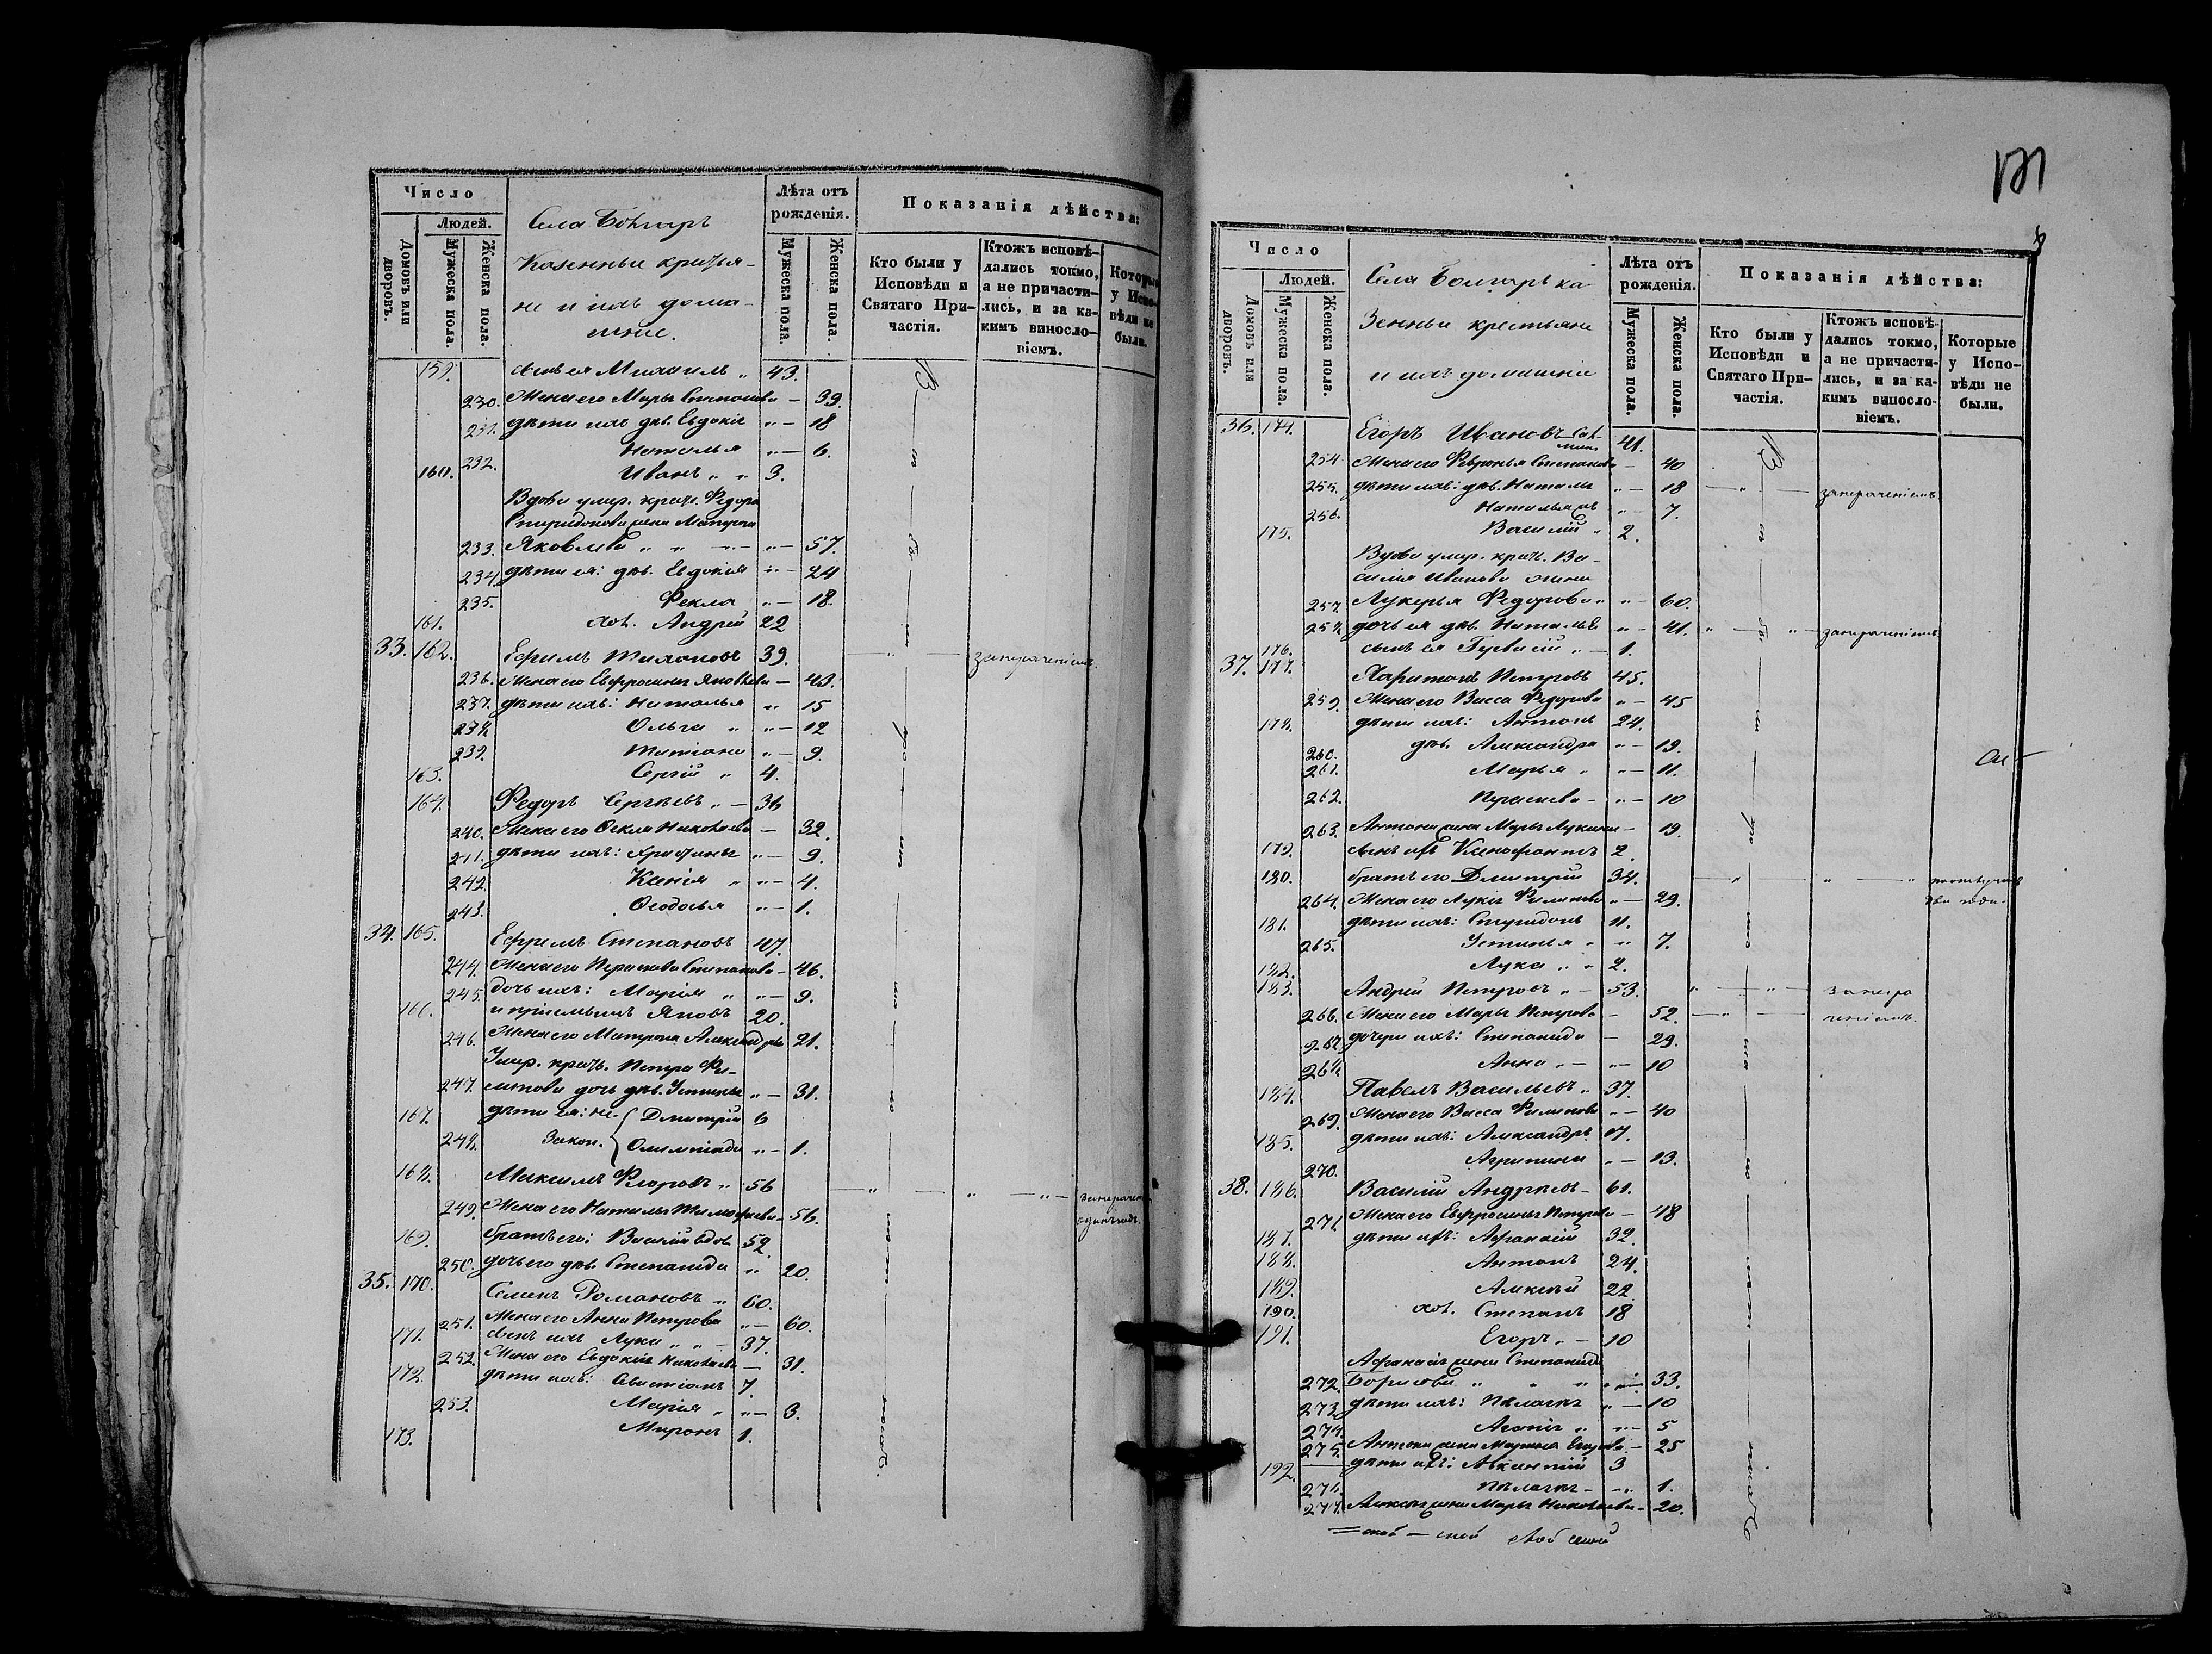 Число
Людей.
Домовъ или дворовъ.
Мужеска пола.
Женска пола.
Села Болгаръ
Казенные крестья-
не и ихъ дома-
шніе.
Лѣта отъ рожденія.
Мужеска пола.
Женска пола.
Показанія дѣйства:
Кто были у Исповѣди и Святаго При-частія.
Ктожъ исповѣ-дались токмо, а не причасти-лись, и за ка-кимъ винословіемъ.
Которые у Испо-вѣди не были.
159. сынъ ея Михаилъ „ 43.
230. Жена его Марья Степанова — 39.
231. дѣти ихъ дѣв. Евдокія „— 18
232. Наталья „— 6.
160. Иванъ „ „ 3.
Вдова умер. крест. Федора
Спиридонова жена Матрена
233. Яковлева „ „ „— 57.
234. дѣти ея: дѣв. Евдокія „— 24
235. Фекла „— 18.
161. хол. Андрей 22
33. 162. Ефимъ Тихоновъ 39.
236. Жена его Евфросинья Яковлева — 43.
237. дѣти ихъ: Наталья „ 15
238. Ольга „ „— 12
239. Татіана „— 9.
163. Сергій „ 4.
164. Федоръ Сергѣевъ „ — 36
240. Жена его Фекла Николаева — 32.
241. дѣти ихъ: Христина „— 9.
242. Ксенія „ „— 4.
243. Феодосья „— 1.
34. 165. Ефремъ Степановъ 47.
244. Жена его Парасковья Степанова — 46.
245. дочь ихъ: Марія „ „— 9.
166. и пріемышъ Яковъ 20.
246. Жена его Матрена Александрова 21.
Умер. крест. Петра Фи-
247. липпова дочь дѣв. Устинья „— 31.
167. дѣти ея: не- Дмитрій 6
248. закон. Олимпіада „— 1.
168. Максимъ Флоровъ „ 56
249. Жена его Наталья Тимофеева 56.
169. братъ его: Василій вдов. 52.
250. дочь его дѣв. Степанида „ 20.
35. 170. Семенъ Романовъ „ 60.
251. Жена его Анна Петрова „— 60.
171. сынъ ихъ Лука „ „ 37.
252. Жена его Евдокія Николаева — 31.
172. дѣти ихъ: Севастіанъ 7.
253. Марія „ „— 3.
173. Миронъ 1.
Число
Людей.
Домовъ или дворовъ.
Мужеска пола.
Женска пола.
Села Болгаръ ка-
зенные крестьяне
и ихъ домашніе
Лѣта отъ рожденія.
Мужеска пола.
Женска пола.
Показанія дѣйства:
Кто были у Исповѣди и Святаго При-частія.
Ктожъ исповѣ-дались токмо, а не причасти-лись, и за ка-кимъ винословіемъ.
Которые у Испо-вѣди не были.
36. 174. Егоръ Ивановъ 41.
254. Жена его Февронья Степанова — 40
255. дѣти ихъ: дѣв. Наталья „— 18
256. Наталья „— 7.
175. Василій „ 2.
Вдова умер. крест. Ва-
силія Иванова жена
257. Лукерья Федорова „ „— 60.
258. дочь ея дѣв. Наталья „— 41.
176. сынъ ея Гервасій „ — 1.
37. 177. Харитонъ Петровъ 45.
259. Жена его Васса Федорова „— 45
178. дѣти ихъ: Антонъ 24.
260. дѣв. Александра „— 19.
261. Марья „ „— 11.
262. Прасковья — „— 10
263. Антона жена Марья Лукина — 19.
179. сынъ ихъ Ксенофонтъ 2.
180. братъ его Дмитрій 34.
264. Жена его Лукія Филипова „— 29.
181. дѣти ихъ: Спиридонъ 11.
265. Устинья „ „ 7.
182. Лука „ „ 2.
183. Андрей Петровъ „ — 53.
266. Жена его Марья Петрова — 52.
267. дочери ихъ: Степанида — 29.
268. Анна „ — „— 10
184. Павелъ Васильевъ „ 37.
269. Жена его Васса Филипова „— 40
185. дѣти ихъ: Александръ 17.
270. Агрипина „— 13.
38. 186. Василій Андреевъ — 61.
271. Жена его Евфросинья Петрова — 48
187. дѣти ихъ: Афанасій 32.
188. Антонъ 24.
189. Алексѣй 22
190. хол. Степанъ 18
191. Егоръ „ — 10
Афанасія жена Степанида
272. Борисова „ „ „ „— 33.
273. дѣти ихъ: Пелагея „— 10
274. Агапія „ „— 5
275. Антона жена Марина Егорова — 25
192. дѣти ихъ: 3
276. Пелагея — „ 1.
277. Алексѣя жена Марья Николаева — 20.